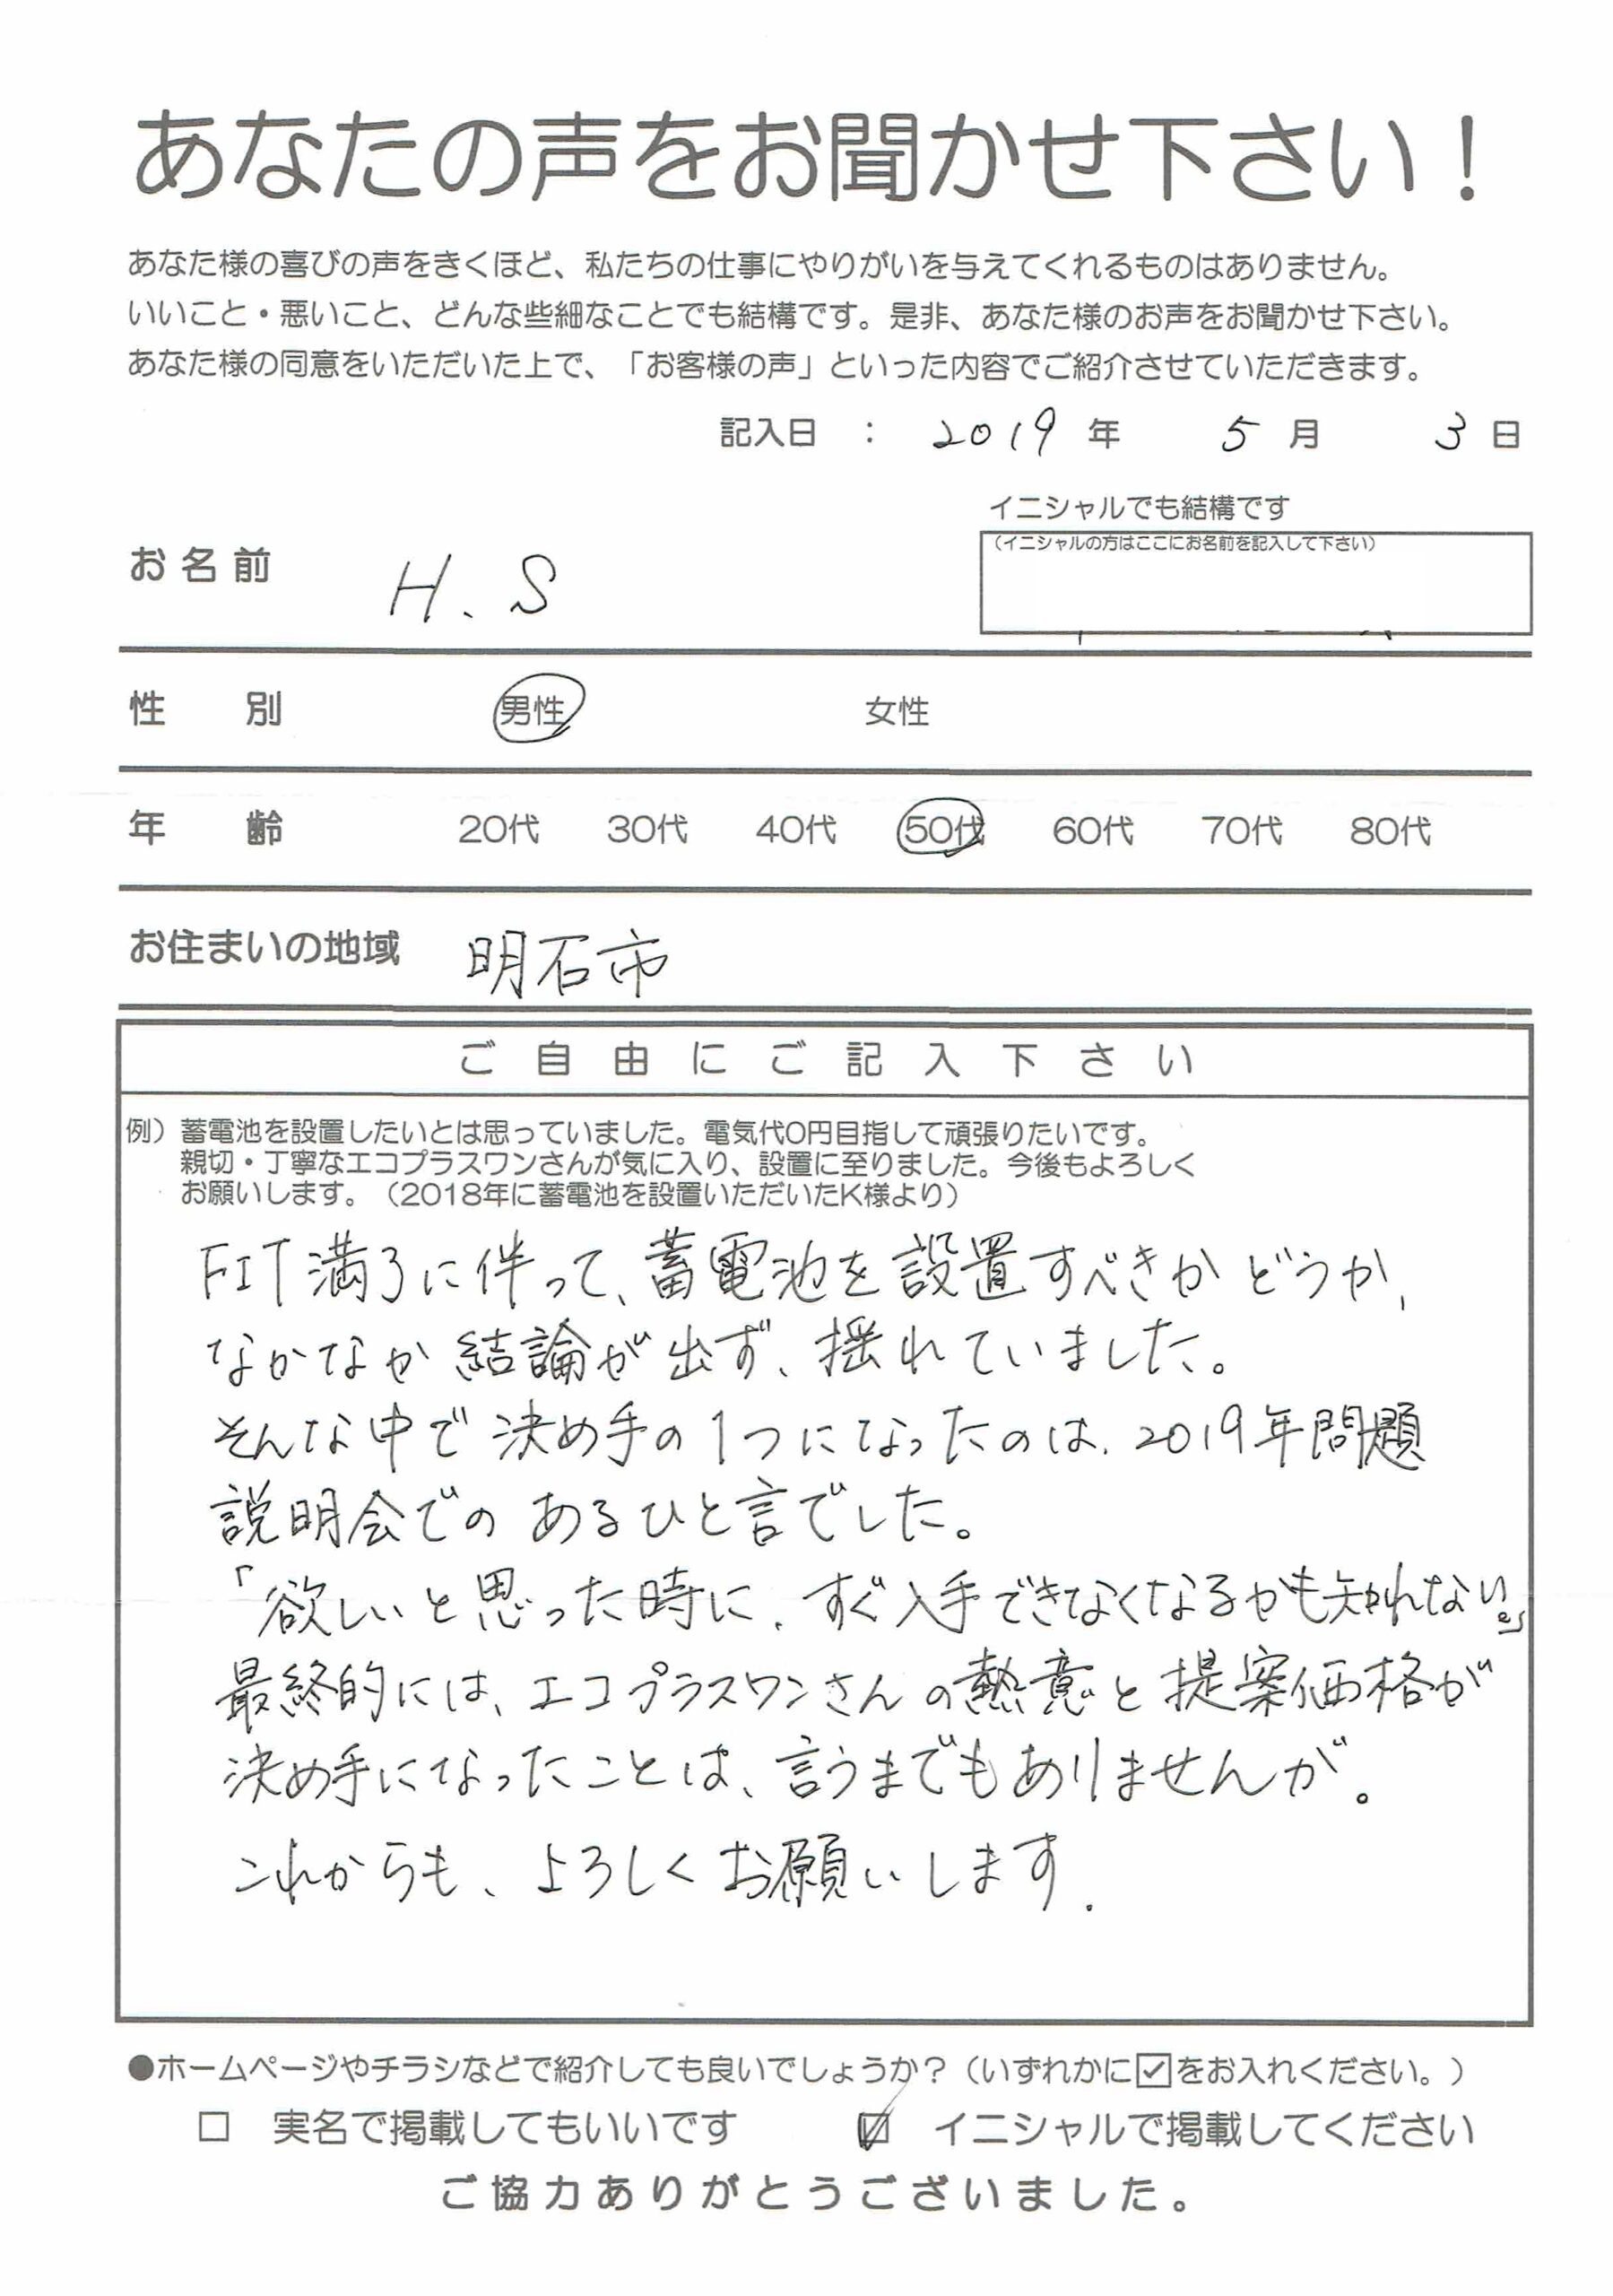 あなたの声をお聞かせ下さい！
あなた様の喜びの声をきくほど、私たちの仕事にやりがいを与えてくれるものはありません。
いいこと・悪いこと、どんな些細なことでも結構です。是非、あなた様のお声をお聞かせ下さい。
あなた様の同意をいただいた上で、「お客様の声」といった内容でご紹介させていただきます。
記入日 ： 2019 年 5 月 3 日
イニシャルでも結構です
（イニシャルの方はここにお名前を記入して下さい）
お名前 H.S
性別 男性 女性
年齢 20代 30代 40代 50代 60代 70代 80代
お住まいの地域 明石市
ご自由にご記入下さい
例）蓄電池を設置したいとは思っていました。電気代0円目指して頑張りたいです。
親切・丁寧なエコプラスワンさんが気に入り、設置に至りました。今後もよろしく
お願いします。（2018年に蓄電池を設置いただいたK様より）
FIT満了に伴って、蓄電池を設置すべきかどうか、
なかなか結論が出ず、揺れていました。
そんな中で決め手の1つになったのは、2019年問題
説明会でのあるひと言でした。
「欲しいと思った時に、すぐ入手できなくなるかも知れない。」
最終的には、エコプラスワンさんの熱意と提案価格が
決め手になったことは、言うまでもありませんが。
これからも、よろしくお願いします.
●ホームページやチラシなどで紹介しても良いでしょうか？（いずれかに☑をお入れください。）
□ 実名で掲載してもいいです ☑ イニシャルで掲載してください
ご協力ありがとうございました。